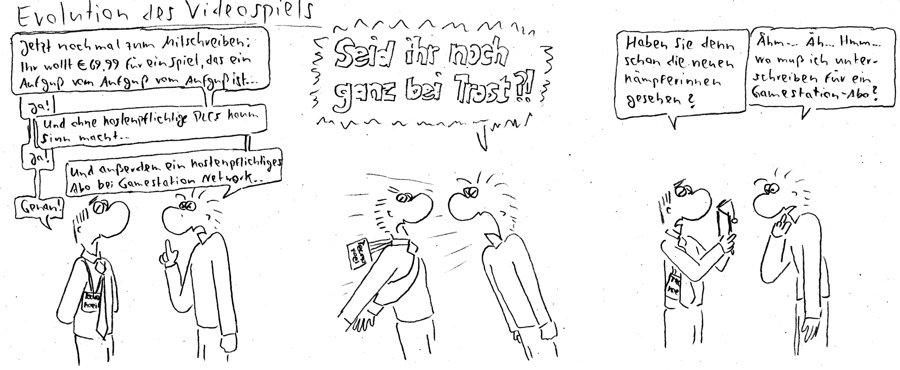 Evolution des Videospiels
Jetzt nochmal zum Mitschreiben:
Ihr wollt € 69,99 für ein Spiel, das ein
Aufguß vom Aufguß vom Aufguß ist...
Ja!
Und ohne kostenpflichtige DLCs kaum
Sinn macht...
Ja!
Und außerdem ein kostenpflichtiges
Abo bei Gamestation Network...
Genau!
Seid ihr noch
ganz bei Trost?!
Haben Sie denn
schon die neuen
Kämpferinnen
gesehen?
Ähm... Äh... Hmm...
wo muß ich unter-
schreiben für ein
Gamestation-Abo?